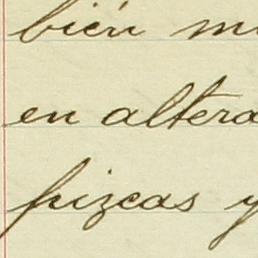 bién m
en altera
pizcas y